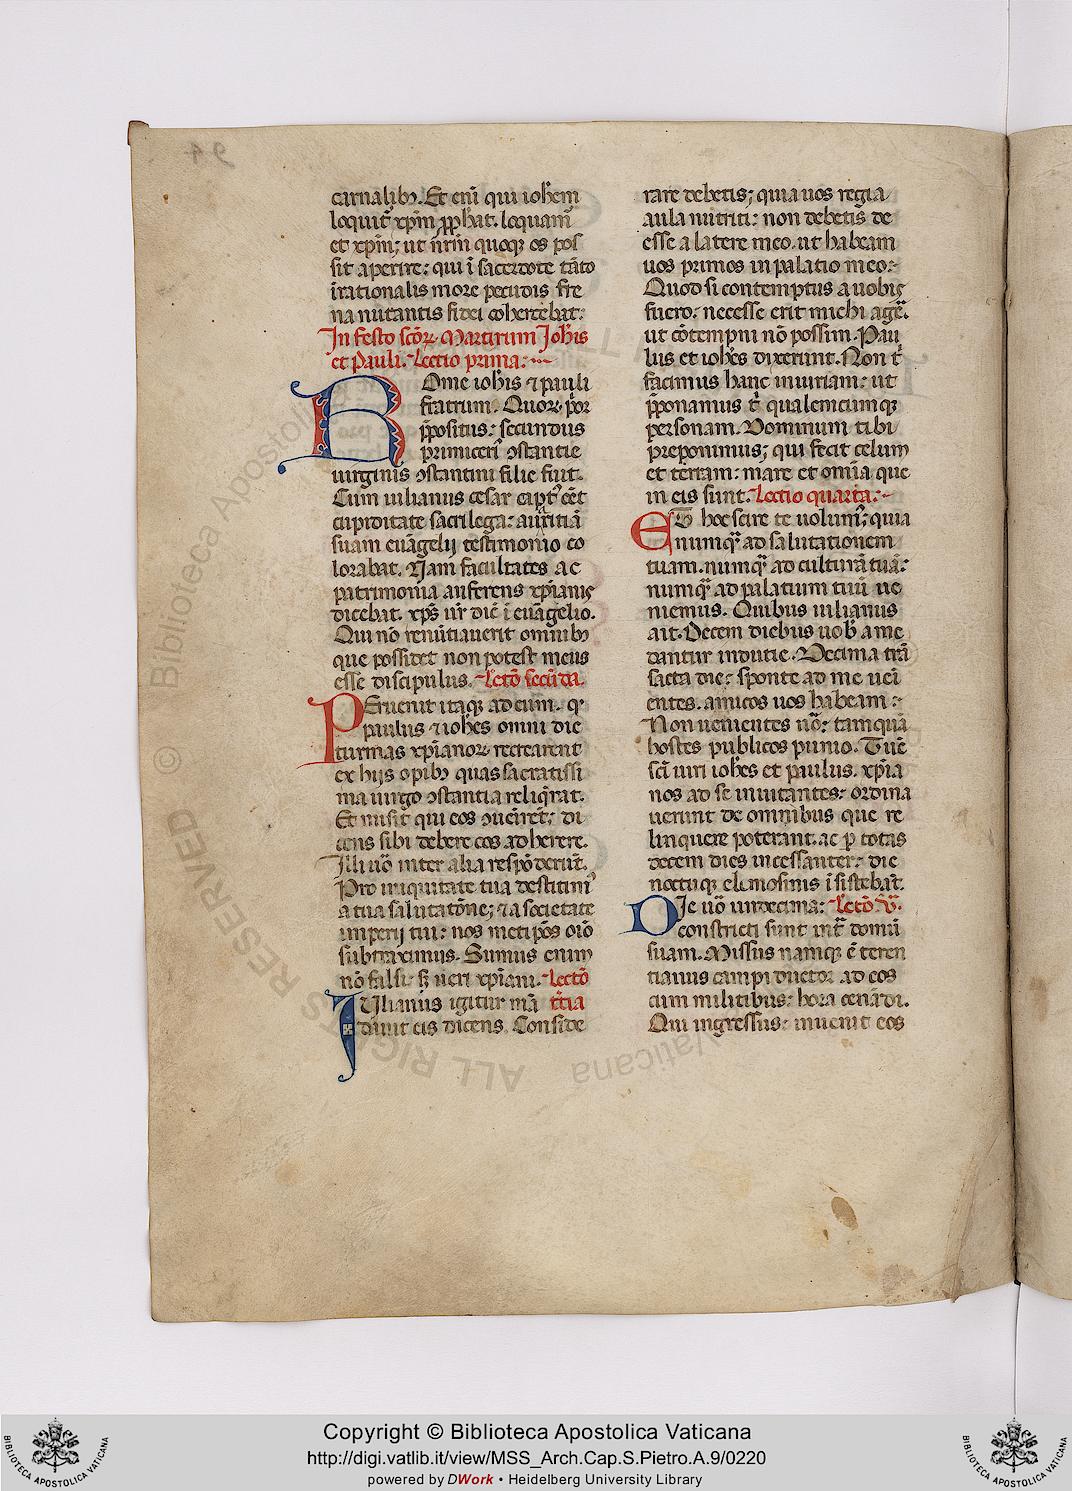 94
carnalibꝫ. Et eni̅ qui ioh̅em
loquit᷑ xp̅m ꝓp̅hat. loquam᷑
et xp̅m; ut n̅rm̅ quoqꝫ os pos
sit aperire: qui i̅ sacerdote ta̅to
i̅rationalis more pecudis fre
na nutantis fidei cohercebat:
In festo sc̅oꝝ Martirum Joh̅is
et Pauli. Lectio prima:
Rome ioh̅is ⁊ pauli
fratrum. Quoꝝ p̅or
p̅positus: secundus
primiceri᷒ ꝯstantie
uirginis ꝯstantini filie fuit.
Cum iulianus cesar capt᷒ ee̅t
cupiditate sacrilega: auaritia̅
suam eua̅gelii testimonio co
lorabat. Nam facultates ac
patrimonia auferens xp̅ianis
dicebat. xp̅s ur̅ dic̅ i̅ eua̅gelio.
Qui no̅ renu̅tiauerit omnibꝫ
que possidet non potest meus
esse discipulus. Lecto̅ secu̅da.
Peruenit itaqꝫ ad eum. ꝙ
paulus ⁊ ioh̅es omni die
turmas xp̅ianoꝝ recrearent
ex hiis opibꝫ quas sacratissi
ma uirgo ꝯstantia reliq̅rat.
Et misit qui eos ꝯueni̅ret: di
cens sibi debere eos adherere.
Illi uo̅ inter alia respo̅deru̅t.
Pro iniquitate tua destitim᷒
a tua salutato̅ne; ⁊ a societate
imperii tui: nos metip̅os oi̅o
subtraximus. Sumus enim
no̅ falsi sꝫ ueri xp̅iani. Lecto̅
Iulianus igitur ma̅ t̅cia
dauit eis dicens. Conside
rare debetis; quia uos regia
aula nutriti: non debetis de
esse a latere meo. ut habeam
uos primos in palatio meo:
Quod si contemptus a uobis
fuero: necesse erit michi age̅.
ut co̅tempni no̅ possim. Pau
lus et ioh̅es dixerunt. Non t̅
facimus hanc iniuriam: ut
p̅ponamus t̅ qualemcumqꝫ
personam. Dominum tibi
preponimus; qui fecit celum
et terram: mare et omi̅a que
in eis sunt. Lectio quarta:
Et hoc scire te uolum᷒; quia
numqᷓ ad salutationem
tuam. numqᷓ ad cultura̅ tua̅:
numqᷓ ad palatium tuu̅ ue
niemus. Quibus iulianus
ait. Decem diebus uob̅ a me
dantur indutie. Decima tra̅
sacta die: sponte ad me ueni
entes. amicos uos habeam:
Non uenientes uo̅: tamqua̅
hostes publicos punio. Tu̅c
sc̅i uiri ioh̅es et paulus. xp̅ia
nos ad se inuitantes: ordina
uerunt de omnibus que re
linquere poterant. ac ꝑ totas
decem dies incessanter: die
noctuqꝫ elemosinis i̅sisteba̅t.
Die uo̅ undecima: Lecto̅ .v̅.
constricti sunt int᷑ domu̅
suam. Missus namqꝫ e̅ teren
tianus campi ductor ad eos
cum militibus: hora cena̅di.
Qui ingressus: inuenit eos
© Biblioteca Apostolica Vaticana ALL RIGHTS RESERVED
Copyright © Biblioteca Apostolica Vaticana
http://digi.vatlib.it/view/MSS_Arch.Cap.S.Pietro.A.9/0220
powered by DWork • Heidelberg University Library
BIBLIOTECA APOSTOLICA VATICANA
BIBLIOTECA APOSTOLICA VATICANA